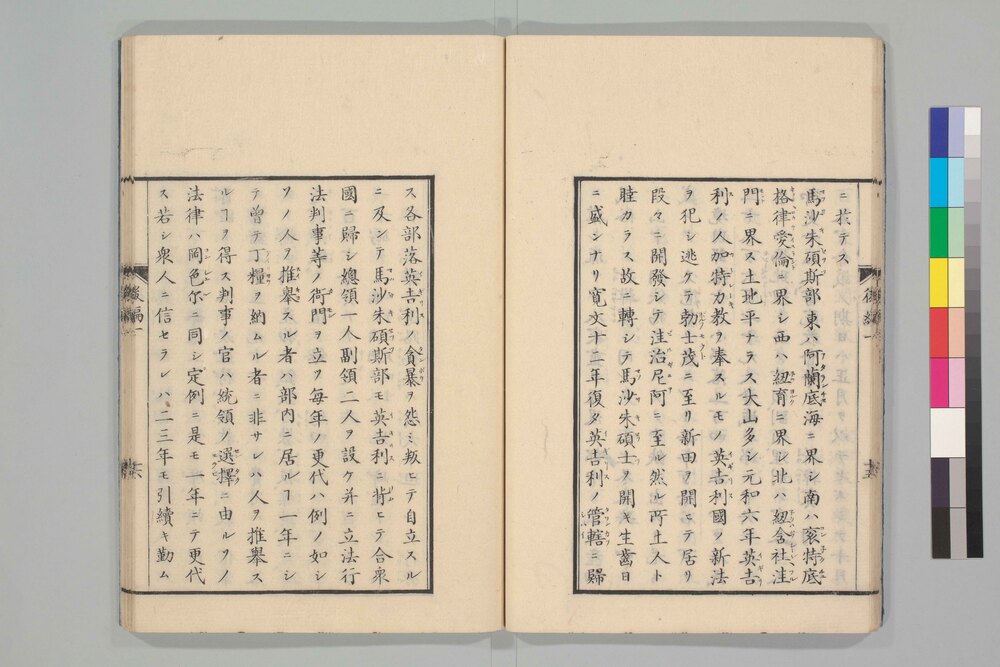 ニ於テス
馬沙朱碩斯部東ハ阿蘭底海ニ界シ南ハ衮特底
格律愛倫ニ界シ西ハ紐育ニ界シ北ハ紐含社洼
門ニ界ス土地平ナラス大山多シ元和六年英吉
利ノ人加特力教ヲ奉スルモノ英吉利國ノ新法
ヲ犯シ逃ケテ勃士茂ニ至リ新田ヲ開ヒテ居リ
段々ニ開發シテ洼治尼阿ニ至ル然ル所土人ト
睦カラス故ニ轉シテ馬沙朱碩士ヲ開キ生齒日
ニ盛ンナリ寛文十二年復タ英吉利ノ管轄ニ歸
ス各部落英吉利ノ貪暴ヲ怨ミ叛ヒテ自立スル
ニ及ンテ馬沙朱碩斯部モ英吉利ニ背ヒテ合衆
國ニ歸シ總領一人副領二人ヲ設ケ并ニ立法行
法判事等ノ衙門ヲ立ツ毎年ノ更代ハ例ノ如シ
ソノ人ヲ推擧スル者ハ部内ニ居ルヿ一年ニシ
テ曾テ丁糧ヲ納ムル者ニ非サレハ人ヲ推擧ス
ルヿヲ得ス判事ノ官ハ統領ノ選擇ニ由ルソノ
法律ハ岡色尔ニ同シ定例ニ是モ一年ニテ更代
ス若シ衆人ニ信セラレハ二三年モ引續キ勤ム
後編一
十五
後編一
十六